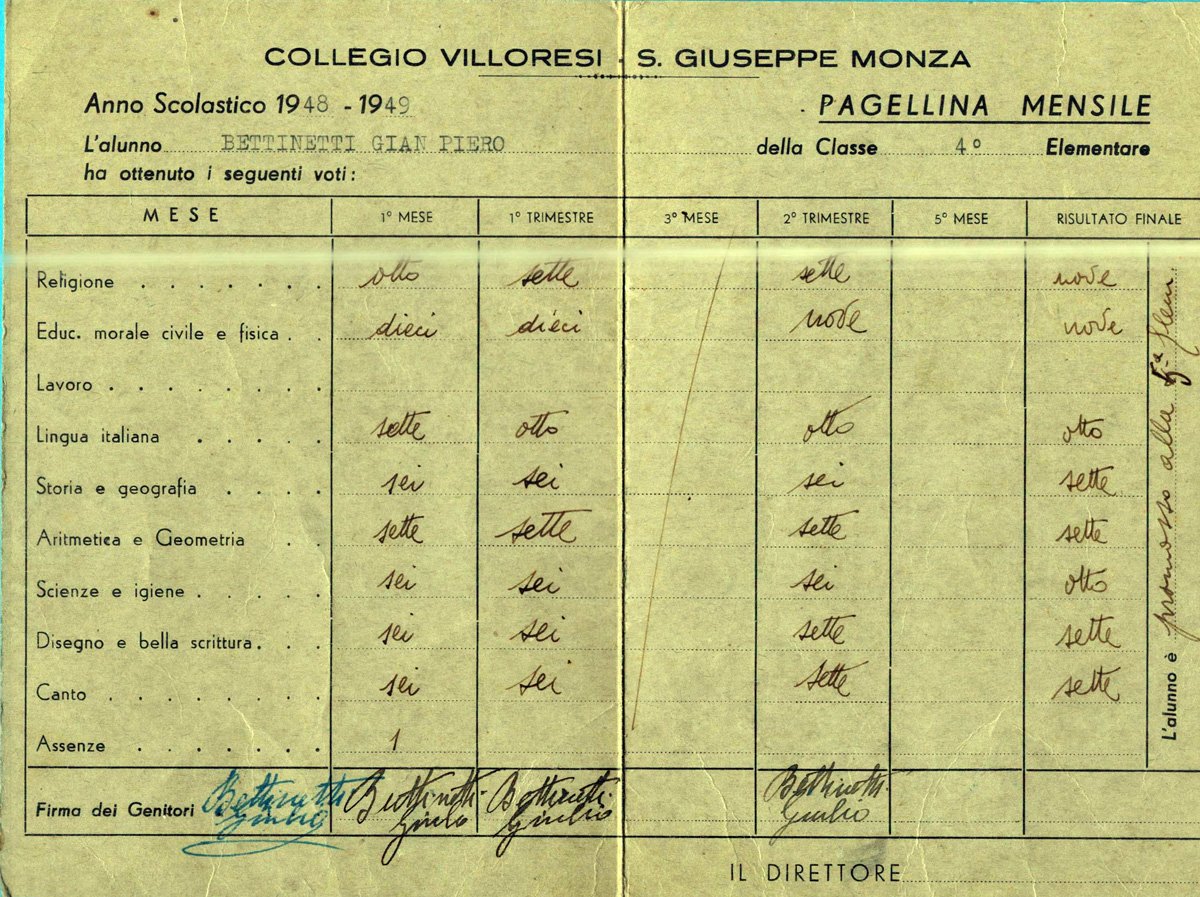 COLLEGIO VILLORESI - S. GIUSEPPE MONZA
Anno Scolastico 1948 - 1949
PAGELLINA MENSILE
L'alunno BETTINETTI GIAN PIERO della Classe 4° Elementare
ha ottenuto i seguenti voti:
MESE 1° MESE 1° TRIMESTRE 3° MESE 2° TRIMESTRE 5° MESE RISULTATO FINALE
Religione otto sette sette nove
Educ. morale civile e fisica dieci dieci nove nove
Lavoro
Lingua italiana sette otto otto otto
Storia e geografia sei sei sei sette
Aritmetica e Geometria sette sette sette sette
Scienze e igiene sei sei sei otto
Disegno e bella scrittura sei sei sette sette
Canto sei sei sette sette
Assenze 1
Firma dei Genitori Bettinetti Bettinetti Bettinetti Bettinetti
Giulio Giulio Giulio Giulio
L'alunno è promosso alla 5ª
IL DIRETTORE